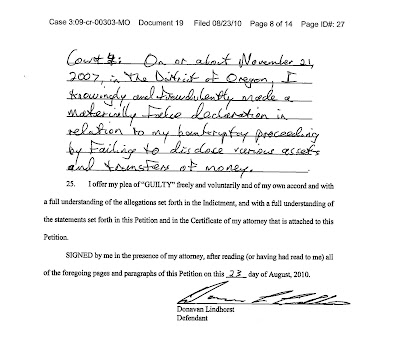 Case 3:09-cr-00303-MO Document 19 Filed 08/23/10 Page 8 of 14 Page ID#: 27
Court : On or about November 21,
2007, in The District of Oregon, I
knowingly and fraudulently made a
materially false declaration in
relation to my bankruptcy proceeding
by Failing to disclose various assets
and transfers of money.
25. I offer my plea of "GUILTY" freely and voluntarily and of my own accord and with
a full understanding of the allegations set forth in the Indictment, and with a full understanding of
the statements set forth in this Petition and in the Certificate of my attorney that is attached to this
Petition.
SIGNED by me in the presence of my attorney, after reading (or having had read to me) all
of the foregoing pages and paragraphs of this Petition on this 23 day of August, 2010.
Donavan Lindhorst
Defendant